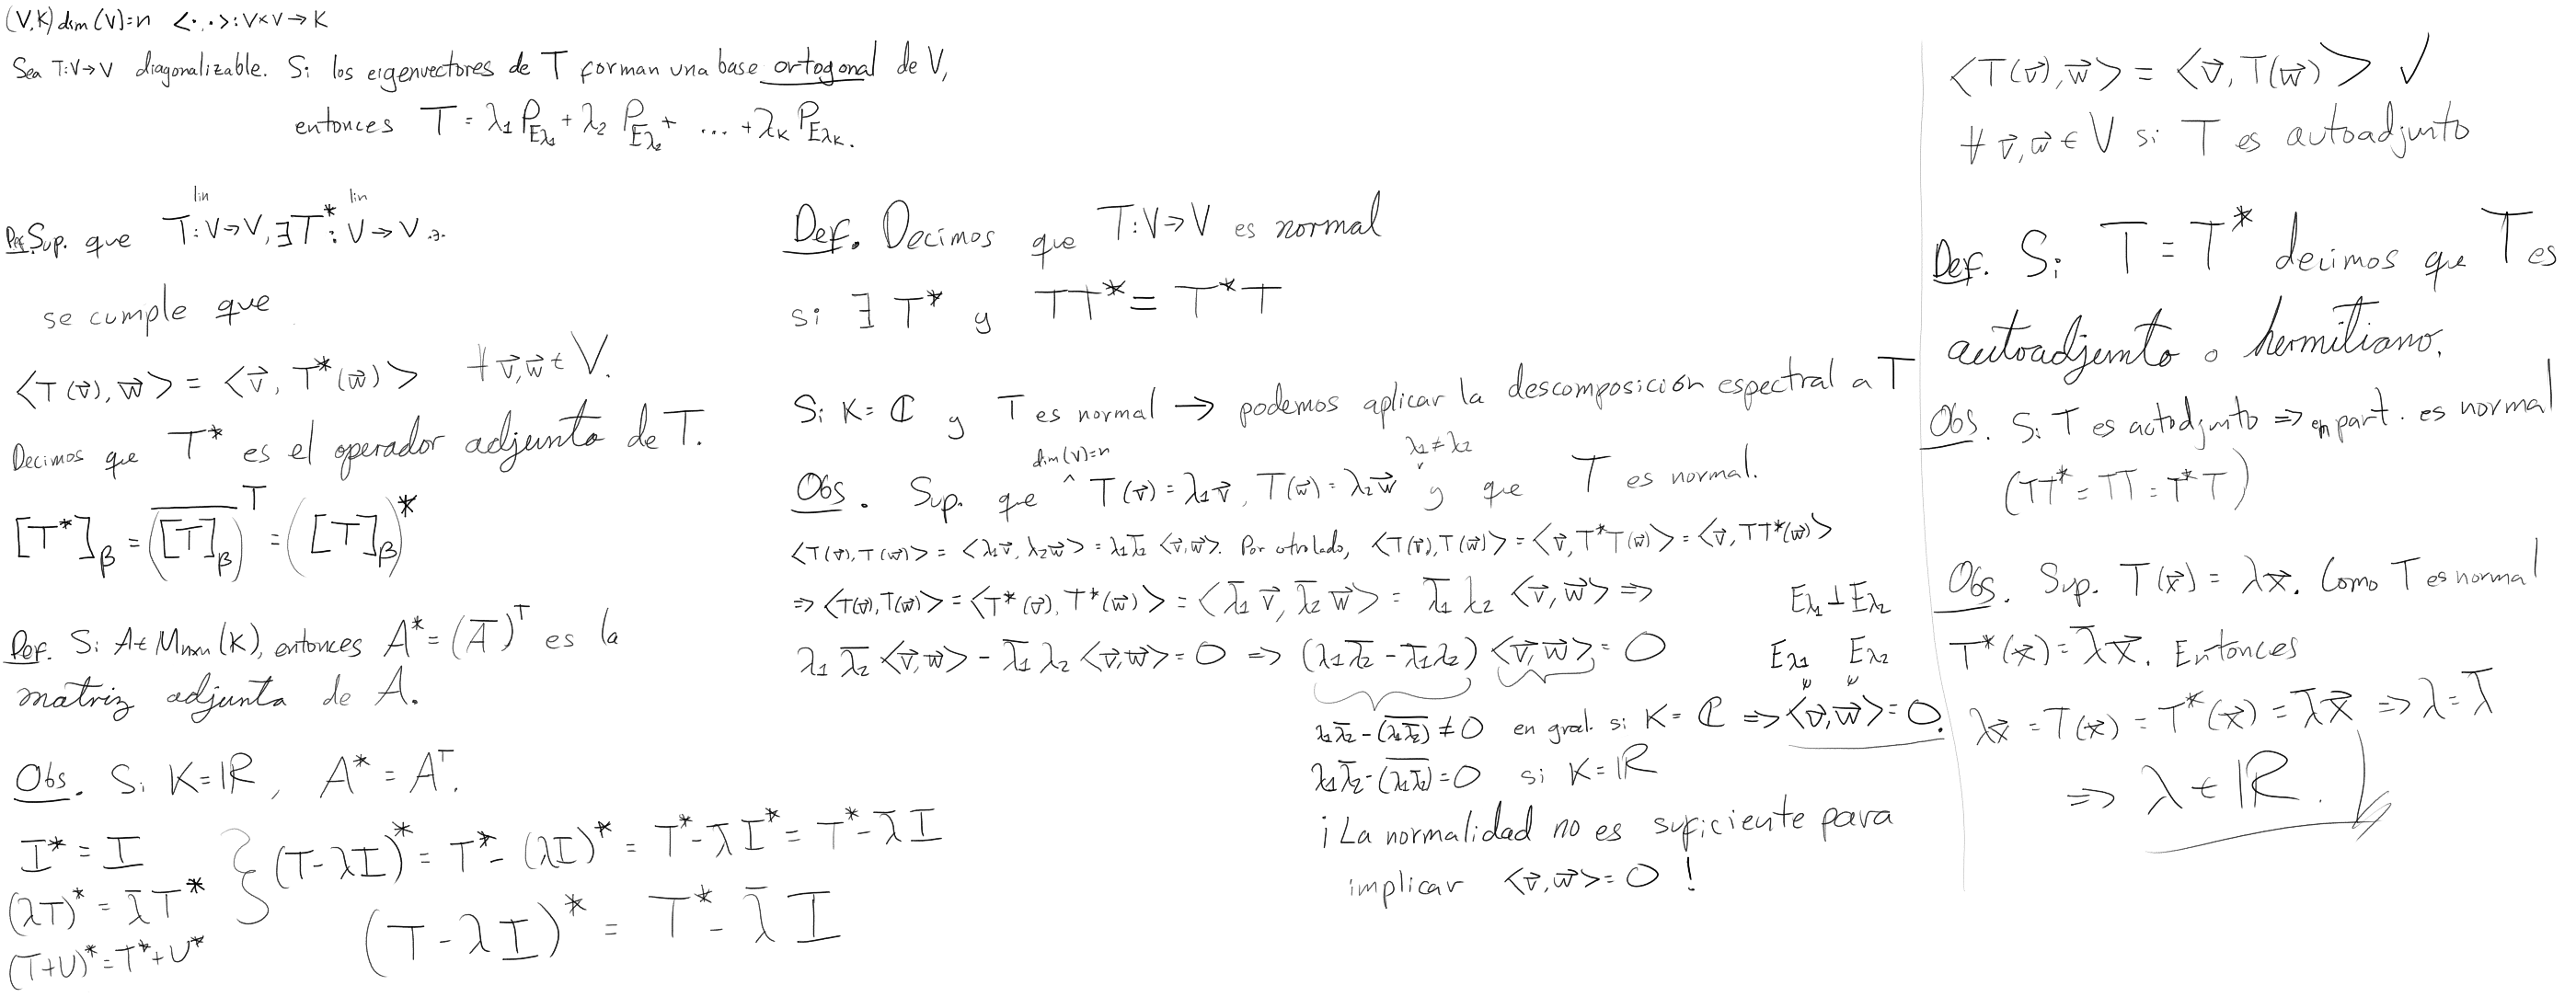 (V,K) dim(V)=n <·,·>:V×V→K
Sea T:V→V diagonalizable. Si los eigenvectores de T forman una base ortogonal de V,
entonces T = λ₁ P_{Eλ₁} + λ₂ P_{Eλ₂} + ... + λₖ P_{Eλₖ}.
lin lin
Def. Sup. que T:V→V, ∃T*:V→V .э.
se cumple que
<T(v⃗),w⃗> = <v⃗,T*(w⃗)> ∀ v⃗,w⃗ ∈ V.
Decimos que T* es el operador adjunto de T.
[T*]_β = (\overline{[T]_β})^T = ([T]_β)*
Def. Si A∈M_{n×n}(K), entonces A* = (\overline{A})^T es la
matriz adjunta de A.
Obs. Si K=ℝ, A* = A^T.
I* = I
(λT)* = λ̄T*
(T+U)* = T*+U*
(T-λI)* = T*-(λI)* = T*-λ̄I* = T*-λ̄I
(T-λI)* = T*-λ̄I
Def. Decimos que T:V→V es normal
si ∃ T* y TT* = T*T
Si K=ℂ y T es normal → podemos aplicar la descomposición espectral a T
dim(V)=n λ₁≠λ₂
Obs. Sup. que ^ T(v⃗)=λ₁v⃗, T(w⃗)=λ₂w⃗ y que T es normal.
<T(v⃗),T(w⃗)> = <λ₁v⃗,λ₂w⃗> = λ₁λ̄₂ <v⃗,w⃗>. Por otro lado, <T(v⃗),T(w⃗)> = <v⃗,T*T(w⃗)> = <v⃗,TT*(w⃗)>
⇒ <T(v⃗),T(w⃗)> = <T*(v⃗),T*(w⃗)> = <λ̄₁v⃗,λ̄₂w⃗> = λ̄₁λ₂ <v⃗,w⃗> ⇒
λ₁λ̄₂<v⃗,w⃗> - λ̄₁λ₂<v⃗,w⃗> = 0 ⇒ (λ₁λ̄₂-λ̄₁λ₂) <v⃗,w⃗> = 0
Eλ₁⊥Eλ₂
Eλ₁ Eλ₂
λ₁λ̄₂-(\overline{λ₁λ̄₂}) ≠ 0 en gral. si K=ℂ ⇒ <v⃗,w⃗> = 0.
λ₁λ̄₂-(\overline{λ₁λ̄₂}) = 0 si K=ℝ
¡La normalidad no es suficiente para
implicar <v⃗,w⃗> = 0!
<T(v⃗),w⃗> = <v⃗,T(w⃗)> ✓
∀ v⃗,w⃗ ∈ V si T es autoadjunto
Def. Si T = T* decimos que T es
autoadjunto o hermitiano.
Obs. Si T es autodjunto ⇒ en part. es normal
(TT* = TT = T*T)
Obs. Sup. T(x⃗) = λx⃗. Como T es normal
T*(x⃗) = λ̄x⃗. Entonces
λx⃗ = T(x⃗) = T*(x⃗) = λ̄x⃗ ⇒ λ = λ̄
⇒ λ ∈ ℝ.